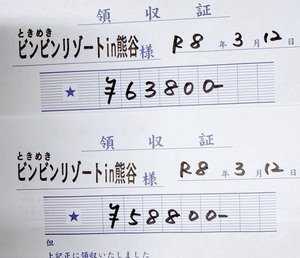 領収証
ときめき
ビンビンリゾートin熊谷様 R8年3月12日
★ ¥63800-
領収証
ときめき
ビンビンリゾートin熊谷様 R8年3月12日
★ ¥58800-
但
上記正に領収いたしました